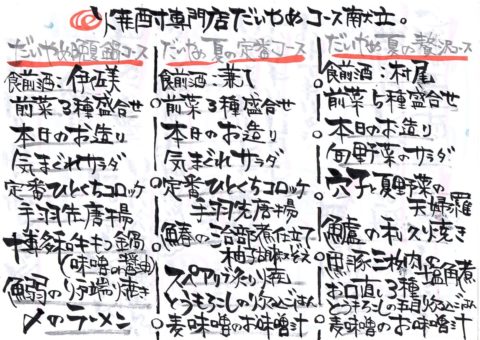 焼酎専門店だいやめコース献立。
だいやめ 鍋コース
食前酒：伊佐美
前菜3種盛合せ
本日のお造り
気まぐれサラダ
定番ひとくちコロッケ
手羽先唐揚
博多和牛もつ鍋
(味噌or醤油)
〆のラーメン
だいやめ夏の定番コース
食前酒：兼八
前菜3種盛合せ
本日のお造り
気まぐれサラダ
定番ひとくちコロッケ
手羽先唐揚
治部煮仕立て
スペアリブ炙り焼
とうもろこしの
麦味噌のお味噌汁
だいやめ夏の贅沢コース
食前酒：村尾
前菜5種盛合せ
本日のお造り
旬野菜のサラダ
穴子と夏野菜の
天婦羅
鱸の利久焼き
黒豚三枚肉の塩角煮
お口直し3種
とうもろこしの
麦味噌のお味噌汁